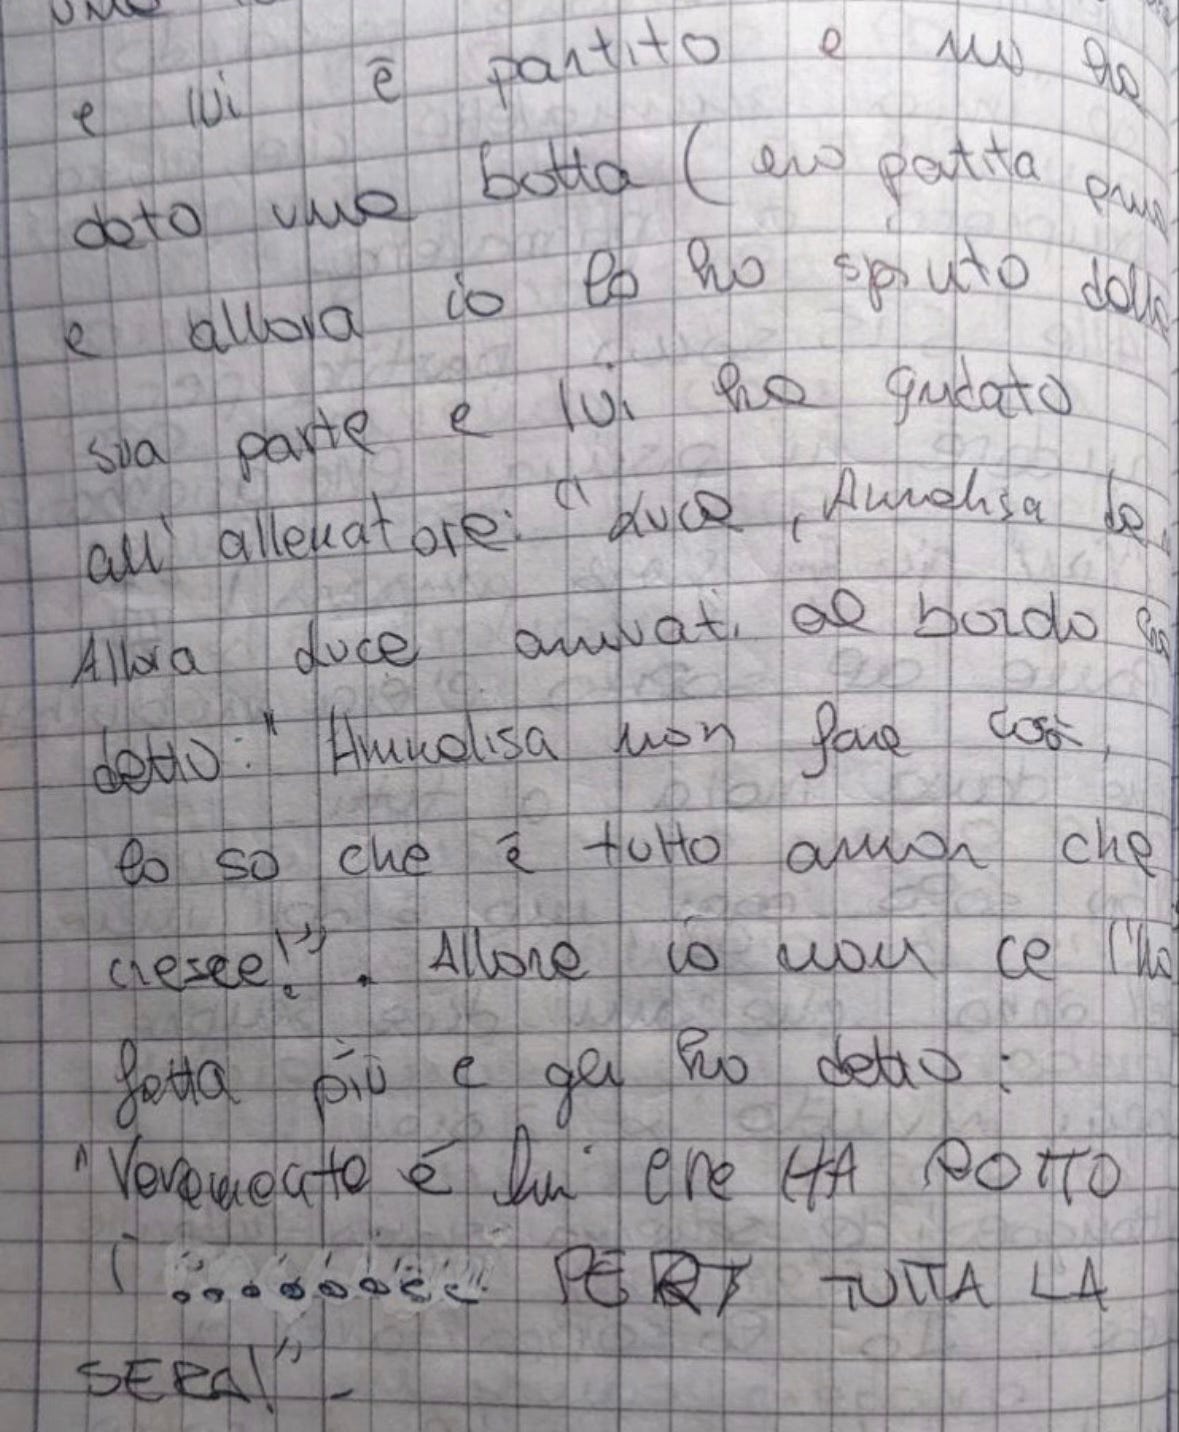 e lui è partito e mi ha
dato una botta (ero partita prima
e allora io lo ho sputo dalla
sua parte e lui ha gridato
all'allenatore: "Luca, Annalisa
Allora Luca arrivati al bordo ha
detto: "Annalisa non fare così,
lo so che è tutto amor che
cresce!". Allora io non ce l'ho
fatta più e gli ho detto:
"Veramente è lui che HA ROTTO
i ......... PER TUTTA LA
SERA!"-